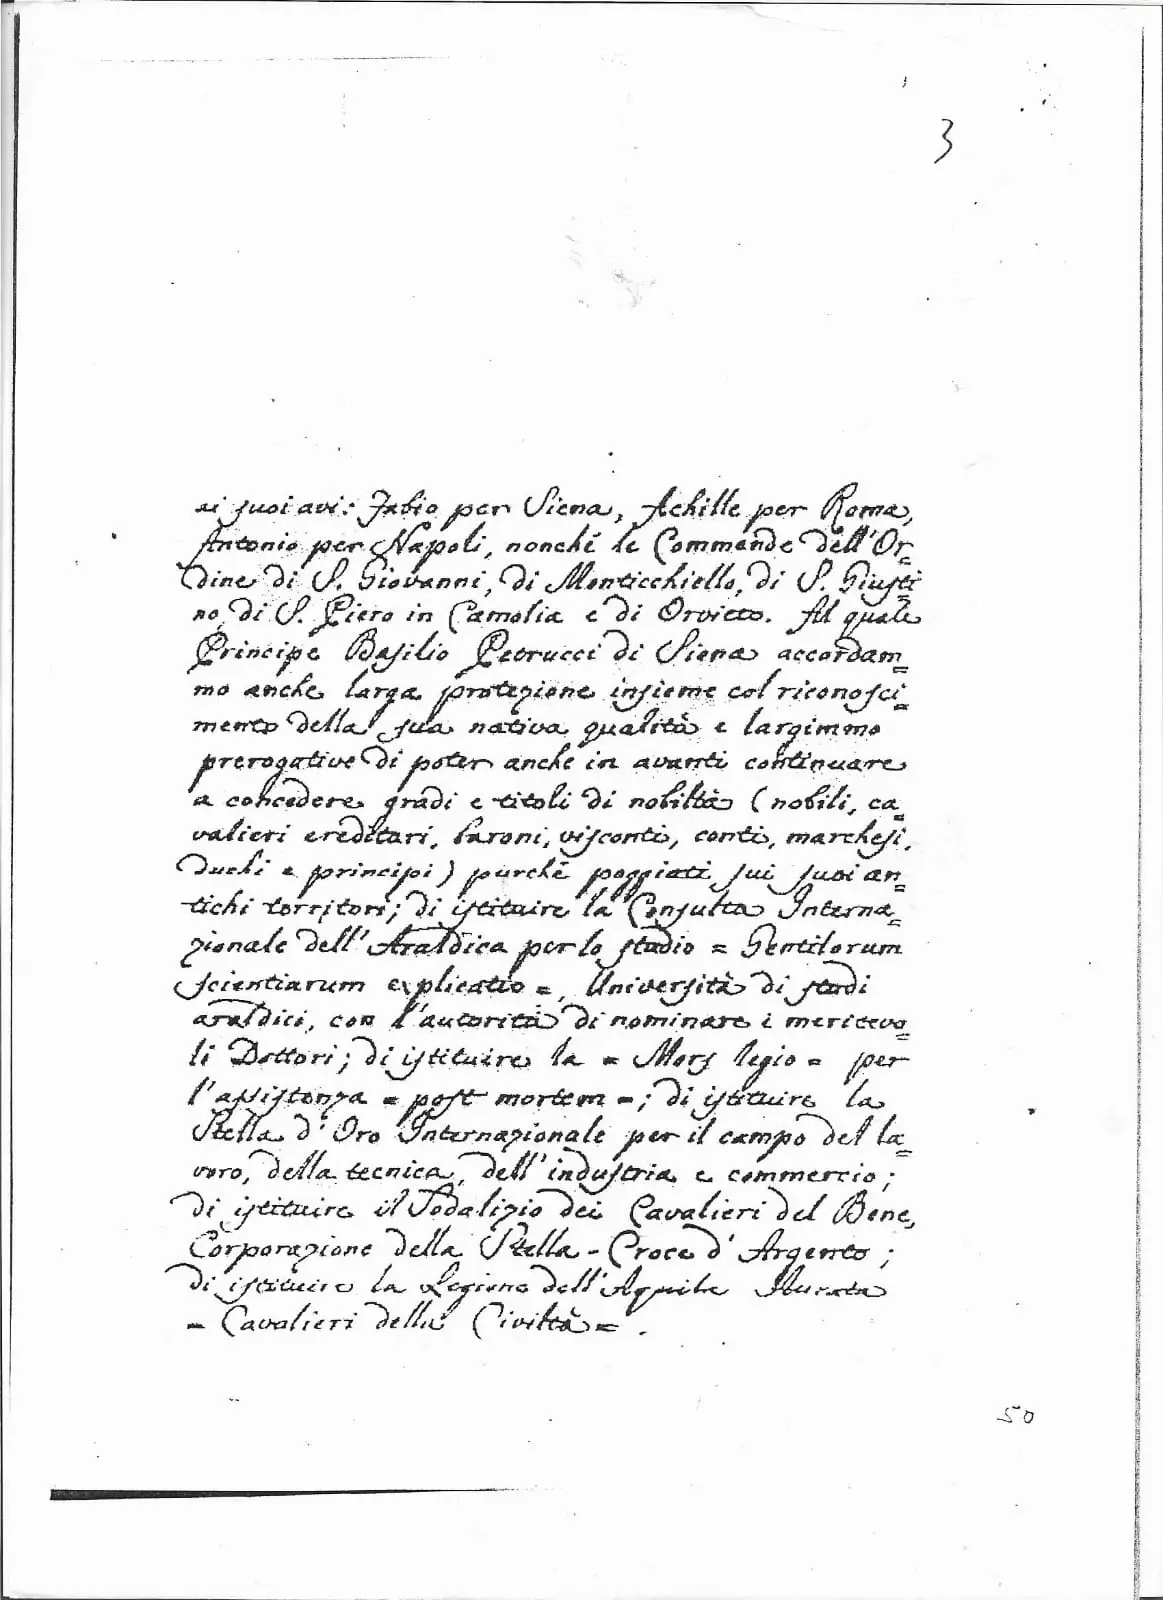 3
ai suoi avi: Fabio per Siena, Achille per Roma,
Antonio per Napoli, nonché le Commende dell'Or=
dine di S. Giovanni, di Monticchiello, di S. Giusti=
no, di S. Piero in Camolia e di Orvieto. Al quale
Principe Basilio Petrucci di Siena accordam=
mo anche larga protezione insieme col riconosci=
mento della sua nativa qualità e largimmo
prerogative di poter anche in avanti continuare
a concedere gradi e titoli di nobiltà (nobili, ca=
valieri ereditari, baroni, visconti, conti, marchesi,
duchi e principi) purché poggiati sui suoi an=
tichi territori; di istituire la Consulta Interna=
zionale dell'Araldica per lo studio = Gentilorum
scientiarum explicatio =, Università di studi
araldici, con l'autorità di nominare i meritevo=
li Dottori; di istituire la = Mors legio = per
l'assistenza = post mortem =; di istituire la
Stella d'Oro Internazionale per il campo del la=
voro, della tecnica, dell'industria e commercio;
di istituire il Sodalizio dei Cavalieri del Bene,
Corporazione della Stella - Croce d'Argento;
di istituire la Legione dell'Aquila Aurata
= Cavalieri della Civiltà = .
50